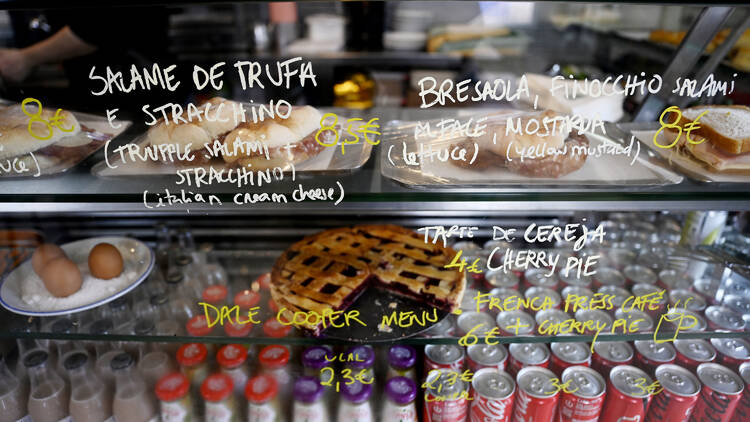 SALAME DE TRUFA
E STRACCHINO
(TRUFFLE SALAMI +
STRACCHINO)
(italian cream cheese)
8€
8,5€
BRESAOLA, FINOCCHIO SALAMI
ALFACE, MOSTARDA
(lettuce) (yellow mustard)
8€
TARTE DE CEREJA
4€ CHERRY PIE
DALE COOPER MENU - FRENCH PRESS CAFÉ
6€ + CHERRY PIE
UCAL
2,3€
3€
3€
Coca-Cola